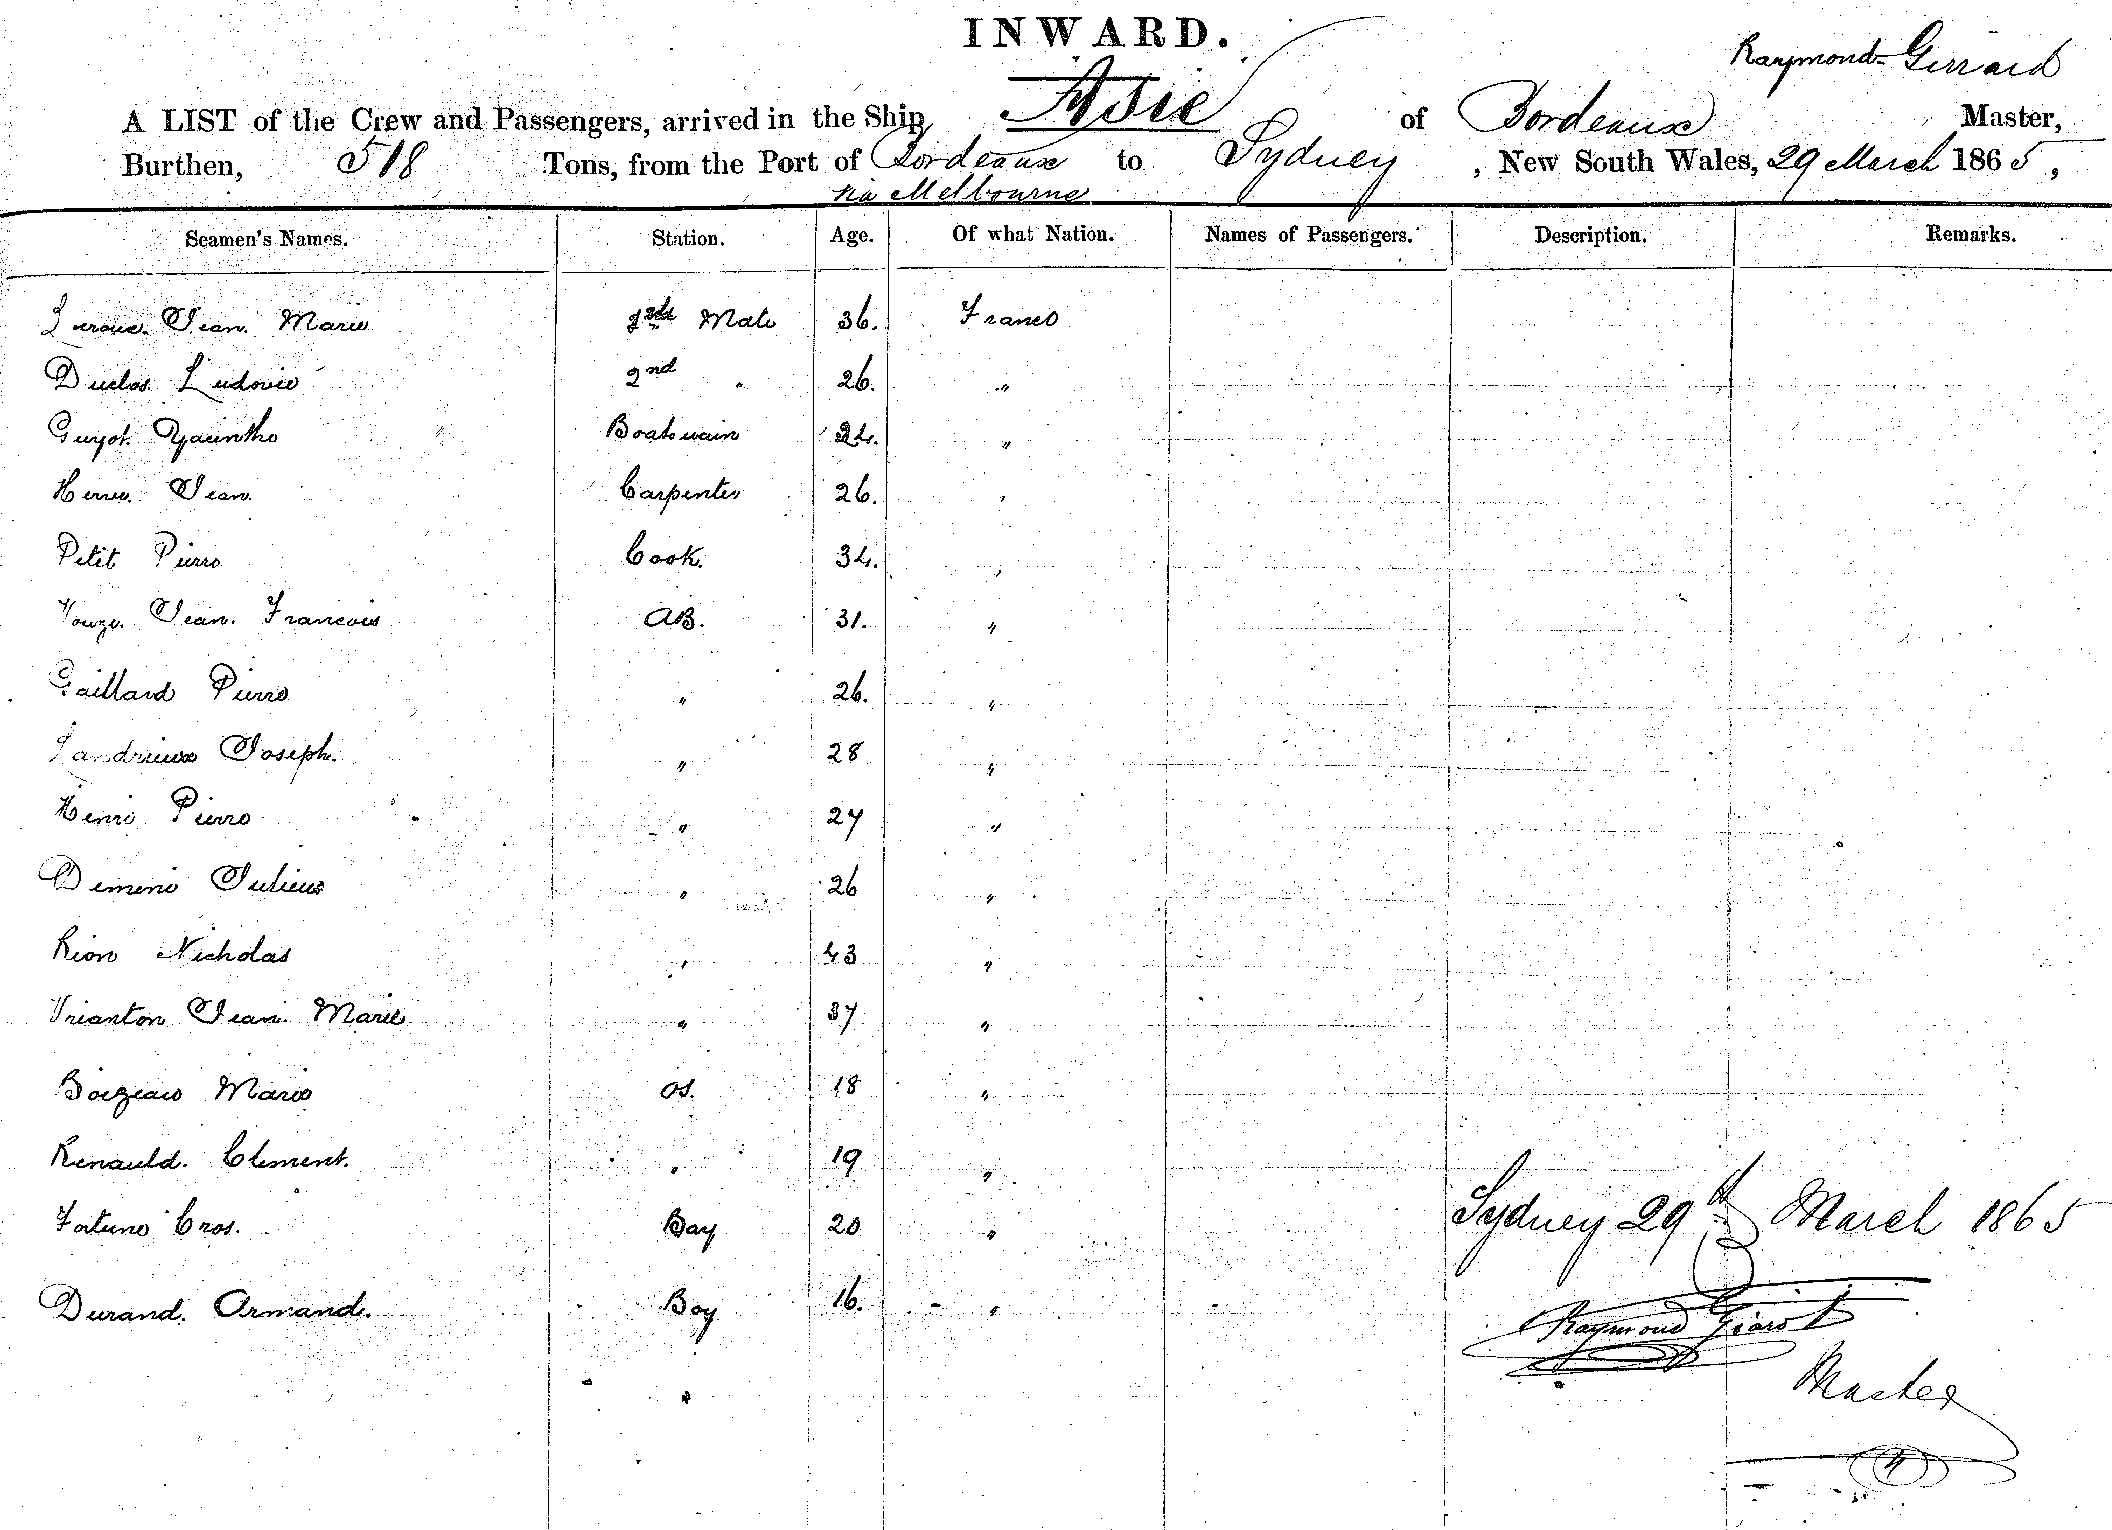 INWARD.
Raymond Girrard
A LIST of the Crew and Passengers, arrived in the Ship Asie of Bordeaux Master,
Burthen, 518 Tons, from the Port of Bordeaux to Sydney, New South Wales, 29 March 1865,
via Melbourne
Seamen's Names. Station. Age. Of what Nation. Names of Passengers. Description. Remarks.
Jean Marie Mate 36. France
Duclos Ludovic 2nd " 26. "
Guyot Yacinthe Boatswain 24. "
Herve Jean Carpenter 26. "
Petit Pierre Cook. 34. "
Jean. Francois AB. 31. "
Gaillard Pierre " 26. "
Landrieux Joseph. " 28 "
Henri Pierre " 27 "
Julieus " 26 "
Rion Nicholas " 43 "
Vrianton Jean Marie " 37 "
Marie OS. 18 "
Renauld. Clement. " 19 "
Fortune Cros. Boy 20 "
Durand. Armand. Boy 16. "
Sydney 29th March 1865
Raymond
Master